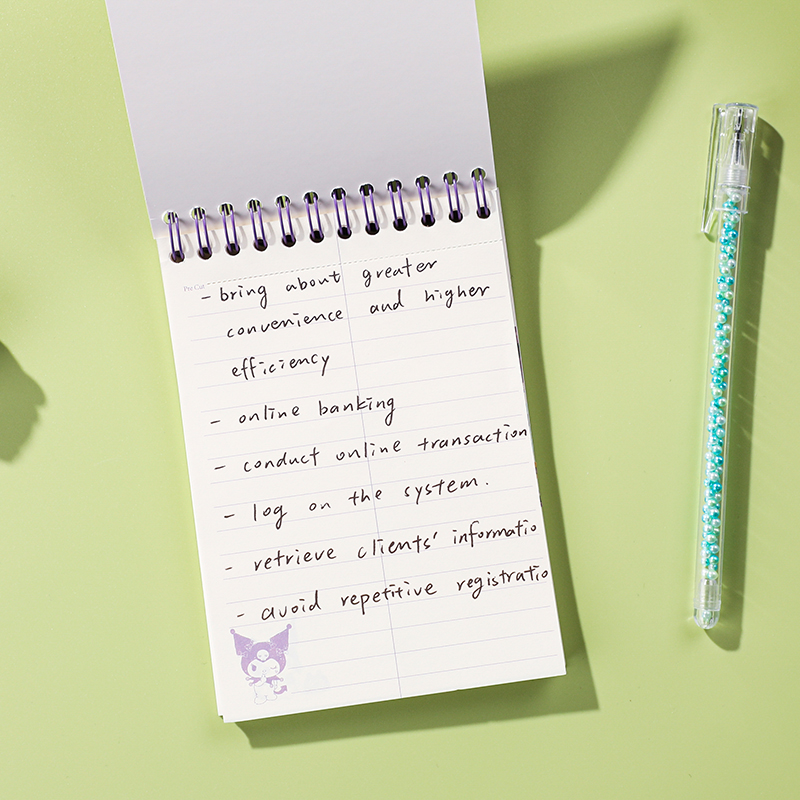 - bring about greater
convenience and higher
efficiency
- online banking
- conduct online transaction
- log on the system.
- retrieve clients' informatio
- avoid repetitive registratio